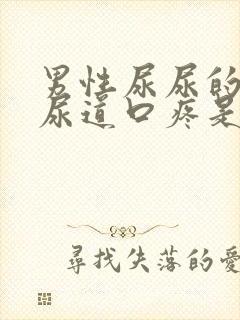 男性尿尿的
尿道口疼是
尋找失落的愛